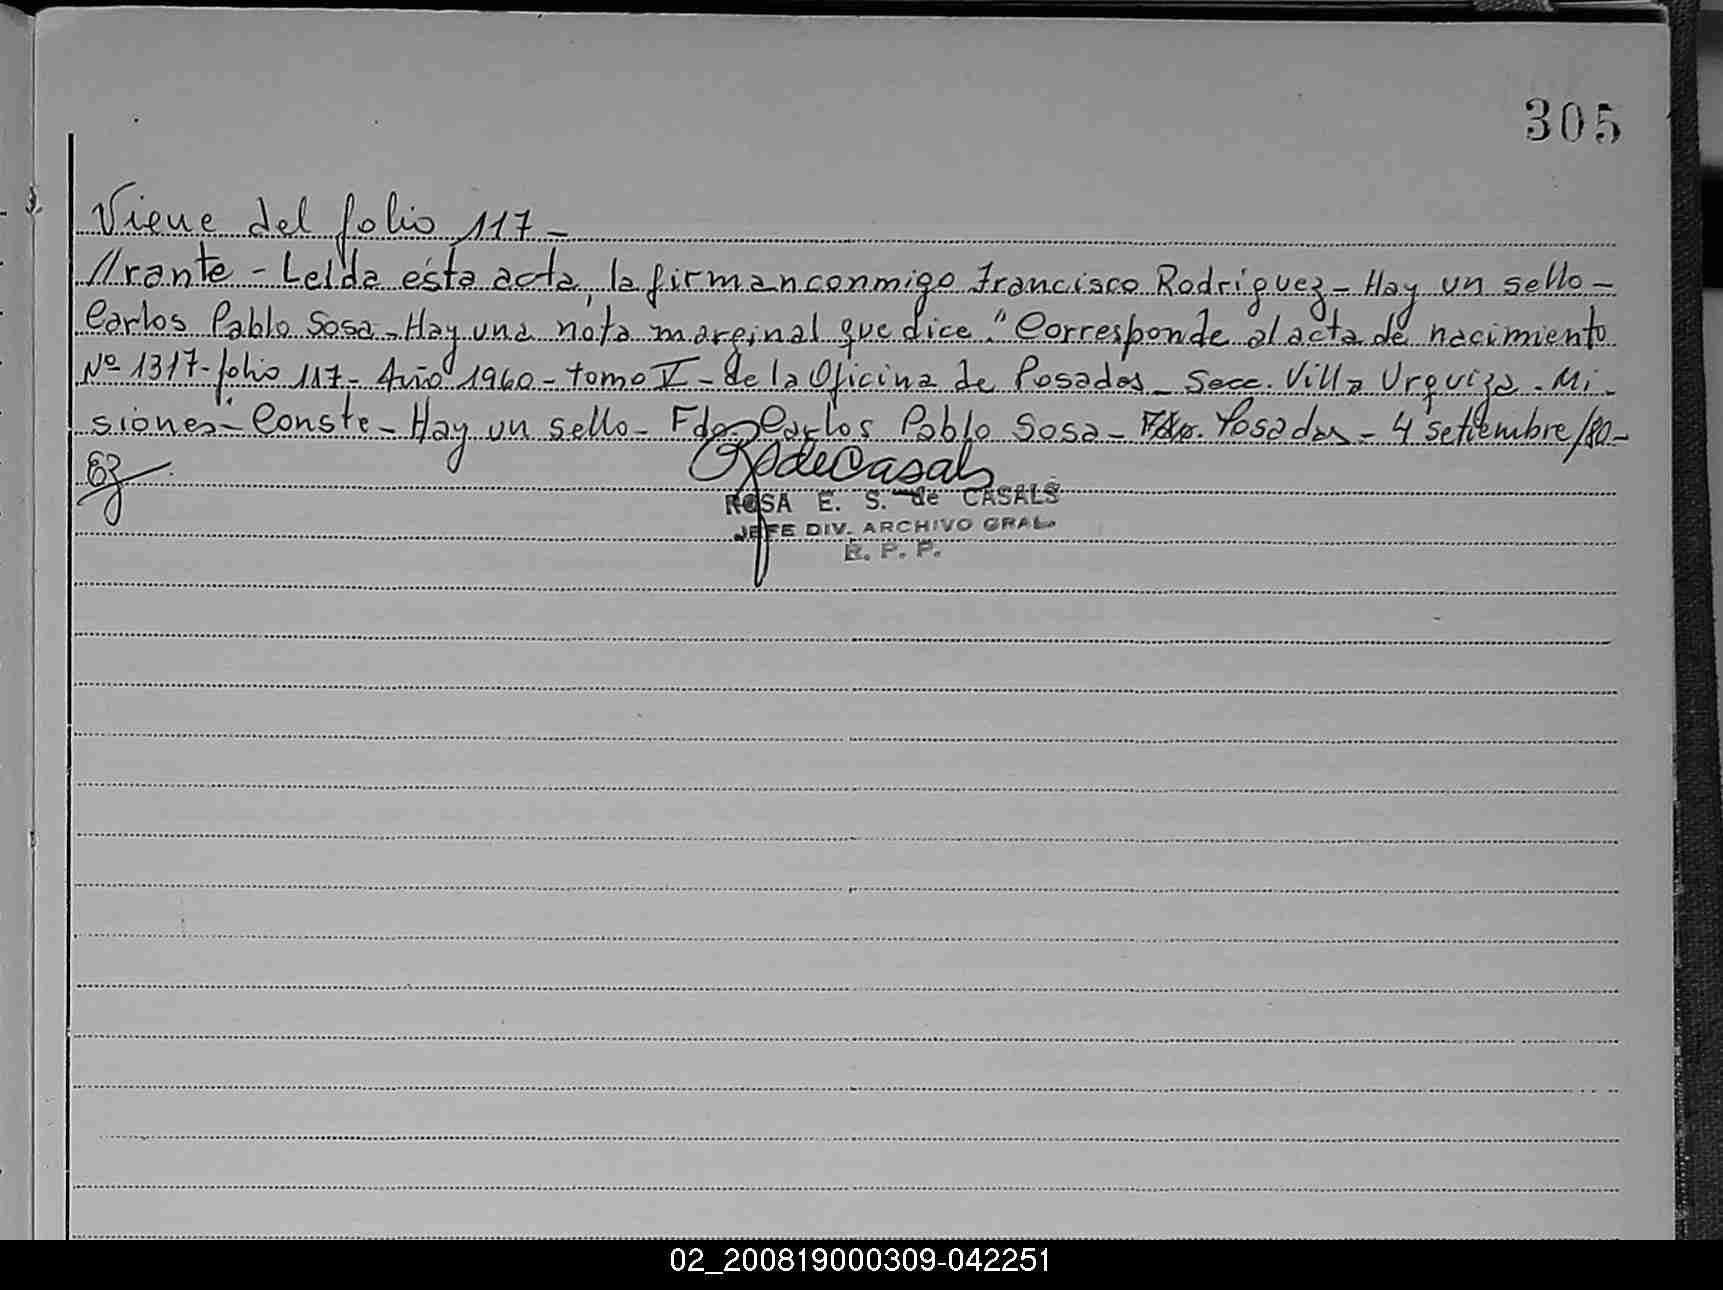 305
Viene del folio 117-
//rante - Leída ésta acta, la firman conmigo Francisco Rodriguez - Hay un sello -
Carlos Pablo Sosa - Hay una nota marginal que dice "Corresponde al acta de nacimiento
Nº 1317- folio 117- Año 1960 - tomo V - de la Oficina de Posadas - Secc. Villa Urquiza - Mi-
siones" - Conste - Hay un sello - Fdo Carlos Pablo Sosa - Posadas - 4 setiembre/80-
ROSA E. S. de CASALS
JEFE DIV. ARCHIVO GRAL.
R. P. P.
02_200819000309-042251